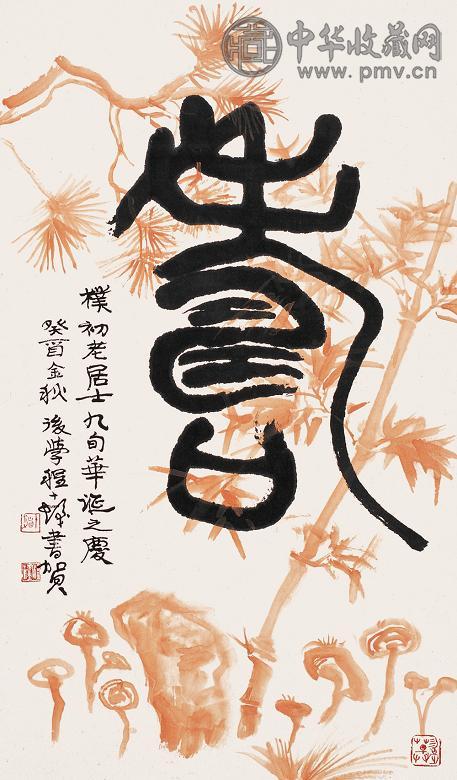 中华收藏网
www.pmv.cn
壽
樸初老居士九旬華誕之慶
癸酉金秋後學程十髮書賀